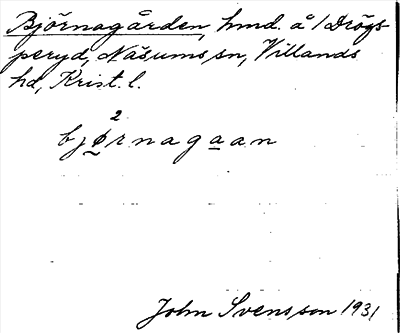 Björnagården, hmd. å 1 Drögs-
peryd, Näsums sn, Villands
hd, Krist. l.
2
bjørnagaan
John Svensson 1931